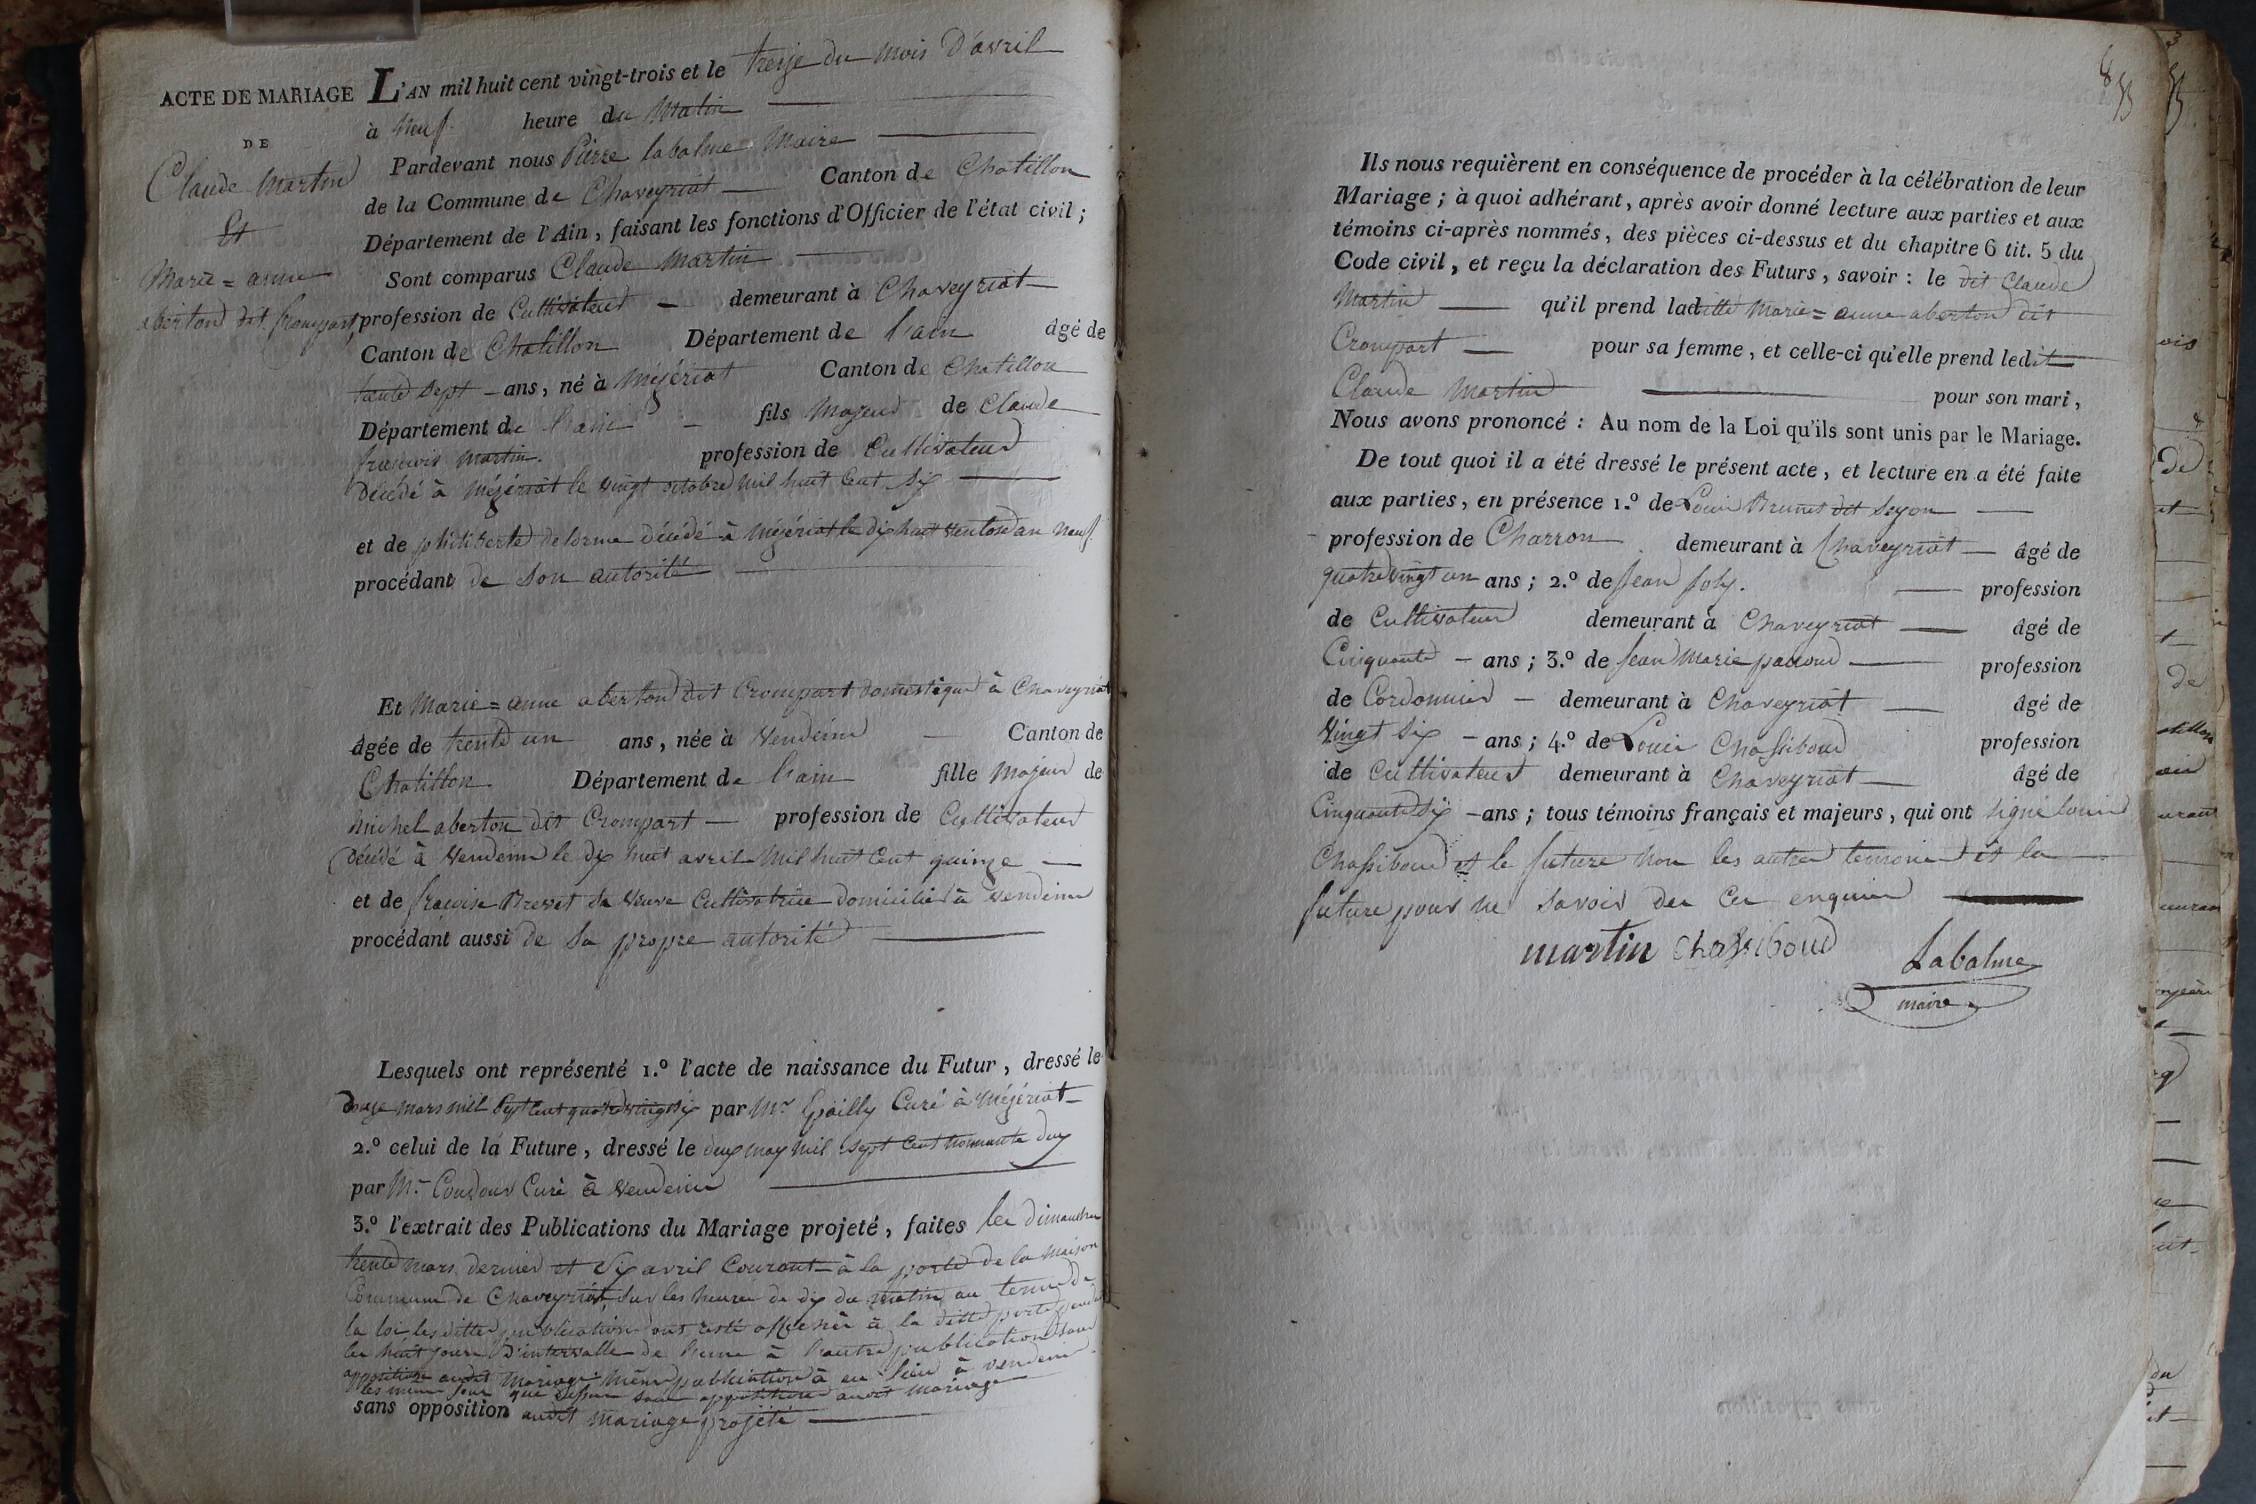 ACTE DE MARIAGE
DE
Claude Martin
Et
Marie = anne
aberton dit Crompart
L'AN mil huit cent vingt-trois et le treize du mois D'avril
à neuf heure du Matin
Pardevant nous Pierre labalme Maire
de la Commune de Chaveyriat Canton de Chatillon
Département de l'Ain, faisant les fonctions d'Officier de l'état civil ;
Sont comparus Claude Martin
profession de Cultivateur demeurant à Chaveyriat
Canton de Chatillon Département de l'ain âgé de
trente sept ans, né à Mézériat Canton de Chatillon
Département de l'ain fils Majeur de Claude
françois Martin. profession de Cultivateur
décédé à Mézériat le vingt octobre mil huit cent six
et de philiberte delorme décédé à Mézériat le dix huit ventose an neuf
procédant de son autorité
Et Marie = anne aberton dit Crompart domestique à Chaveyriat
âgée de trente un ans, née à Vendeins Canton de
Chatillon Département de l'ain fille majeur de
michel aberton dit Crompart profession de Cultivateur
décédé à Vendeins le dix huit avril mil huit cent quinze
et de françoise Brevet sa veuve Cultivatrice domicilié à Vendeins
procédant aussi de sa propre autorité
Lesquels ont représenté 1.º l'acte de naissance du Futur, dressé le
douze mars mil sept cent quatre vingt six par Mr Curé à Mézériat
2.º celui de la Future, dressé le deux may mil sept cent nonante deux
par Mr Curé à Vendeins
3.º l'extrait des Publications du Mariage projeté, faites les dimanches
trente mars dernier et six avril Courant à la porte de la maison
Commune de Chaveyriat, sur les heures de dix du matin au terme de
la loi, les dittes publication ont resté affichés à la ditte porte pendant
les huit jours D'intervalle de l'une à l'autre publication sans
opposition audit mariage même publication à eu lieu à vendeins
les même jour que dessus sans opposition audit mariage
sans opposition audit mariage projeté
Ils nous requièrent en conséquence de procéder à la célébration de leur
Mariage ; à quoi adhérant, après avoir donné lecture aux parties et aux
témoins ci-après nommés, des pièces ci-dessus et du chapitre 6 tit. 5 du
Code civil, et reçu la déclaration des Futurs, savoir : le dit Claude
Martin qu'il prend laditte Marie = anne aberton dit
Crompart pour sa femme, et celle-ci qu'elle prend ledit
Claude Martin pour son mari,
Nous avons prononcé : Au nom de la Loi qu'ils sont unis par le Mariage.
De tout quoi il a été dressé le présent acte, et lecture en a été faite
aux parties, en présence 1.º de Louis Brunet dit Seyon
profession de Charron demeurant à Chaveyriat âgé de
quatre vingt un ans ; 2.º de Jean Joly. profession
de Cultivateur demeurant à Chaveyriat âgé de
Cinquante ans ; 3.º de Jean Marie pacoud profession
de Cordonnier demeurant à Chaveyriat âgé de
Vingt six ans ; 4.º de Louis Chassiboud profession
de Cultivateur demeurant à Chaveyriat âgé de
Cinquante six ans ; tous témoins français et majeurs, qui ont signé louis
Chassiboud et le future non les autres temoins et la
future pour ne savoir de ce enquis
martin Chassiboud Labalme
maire